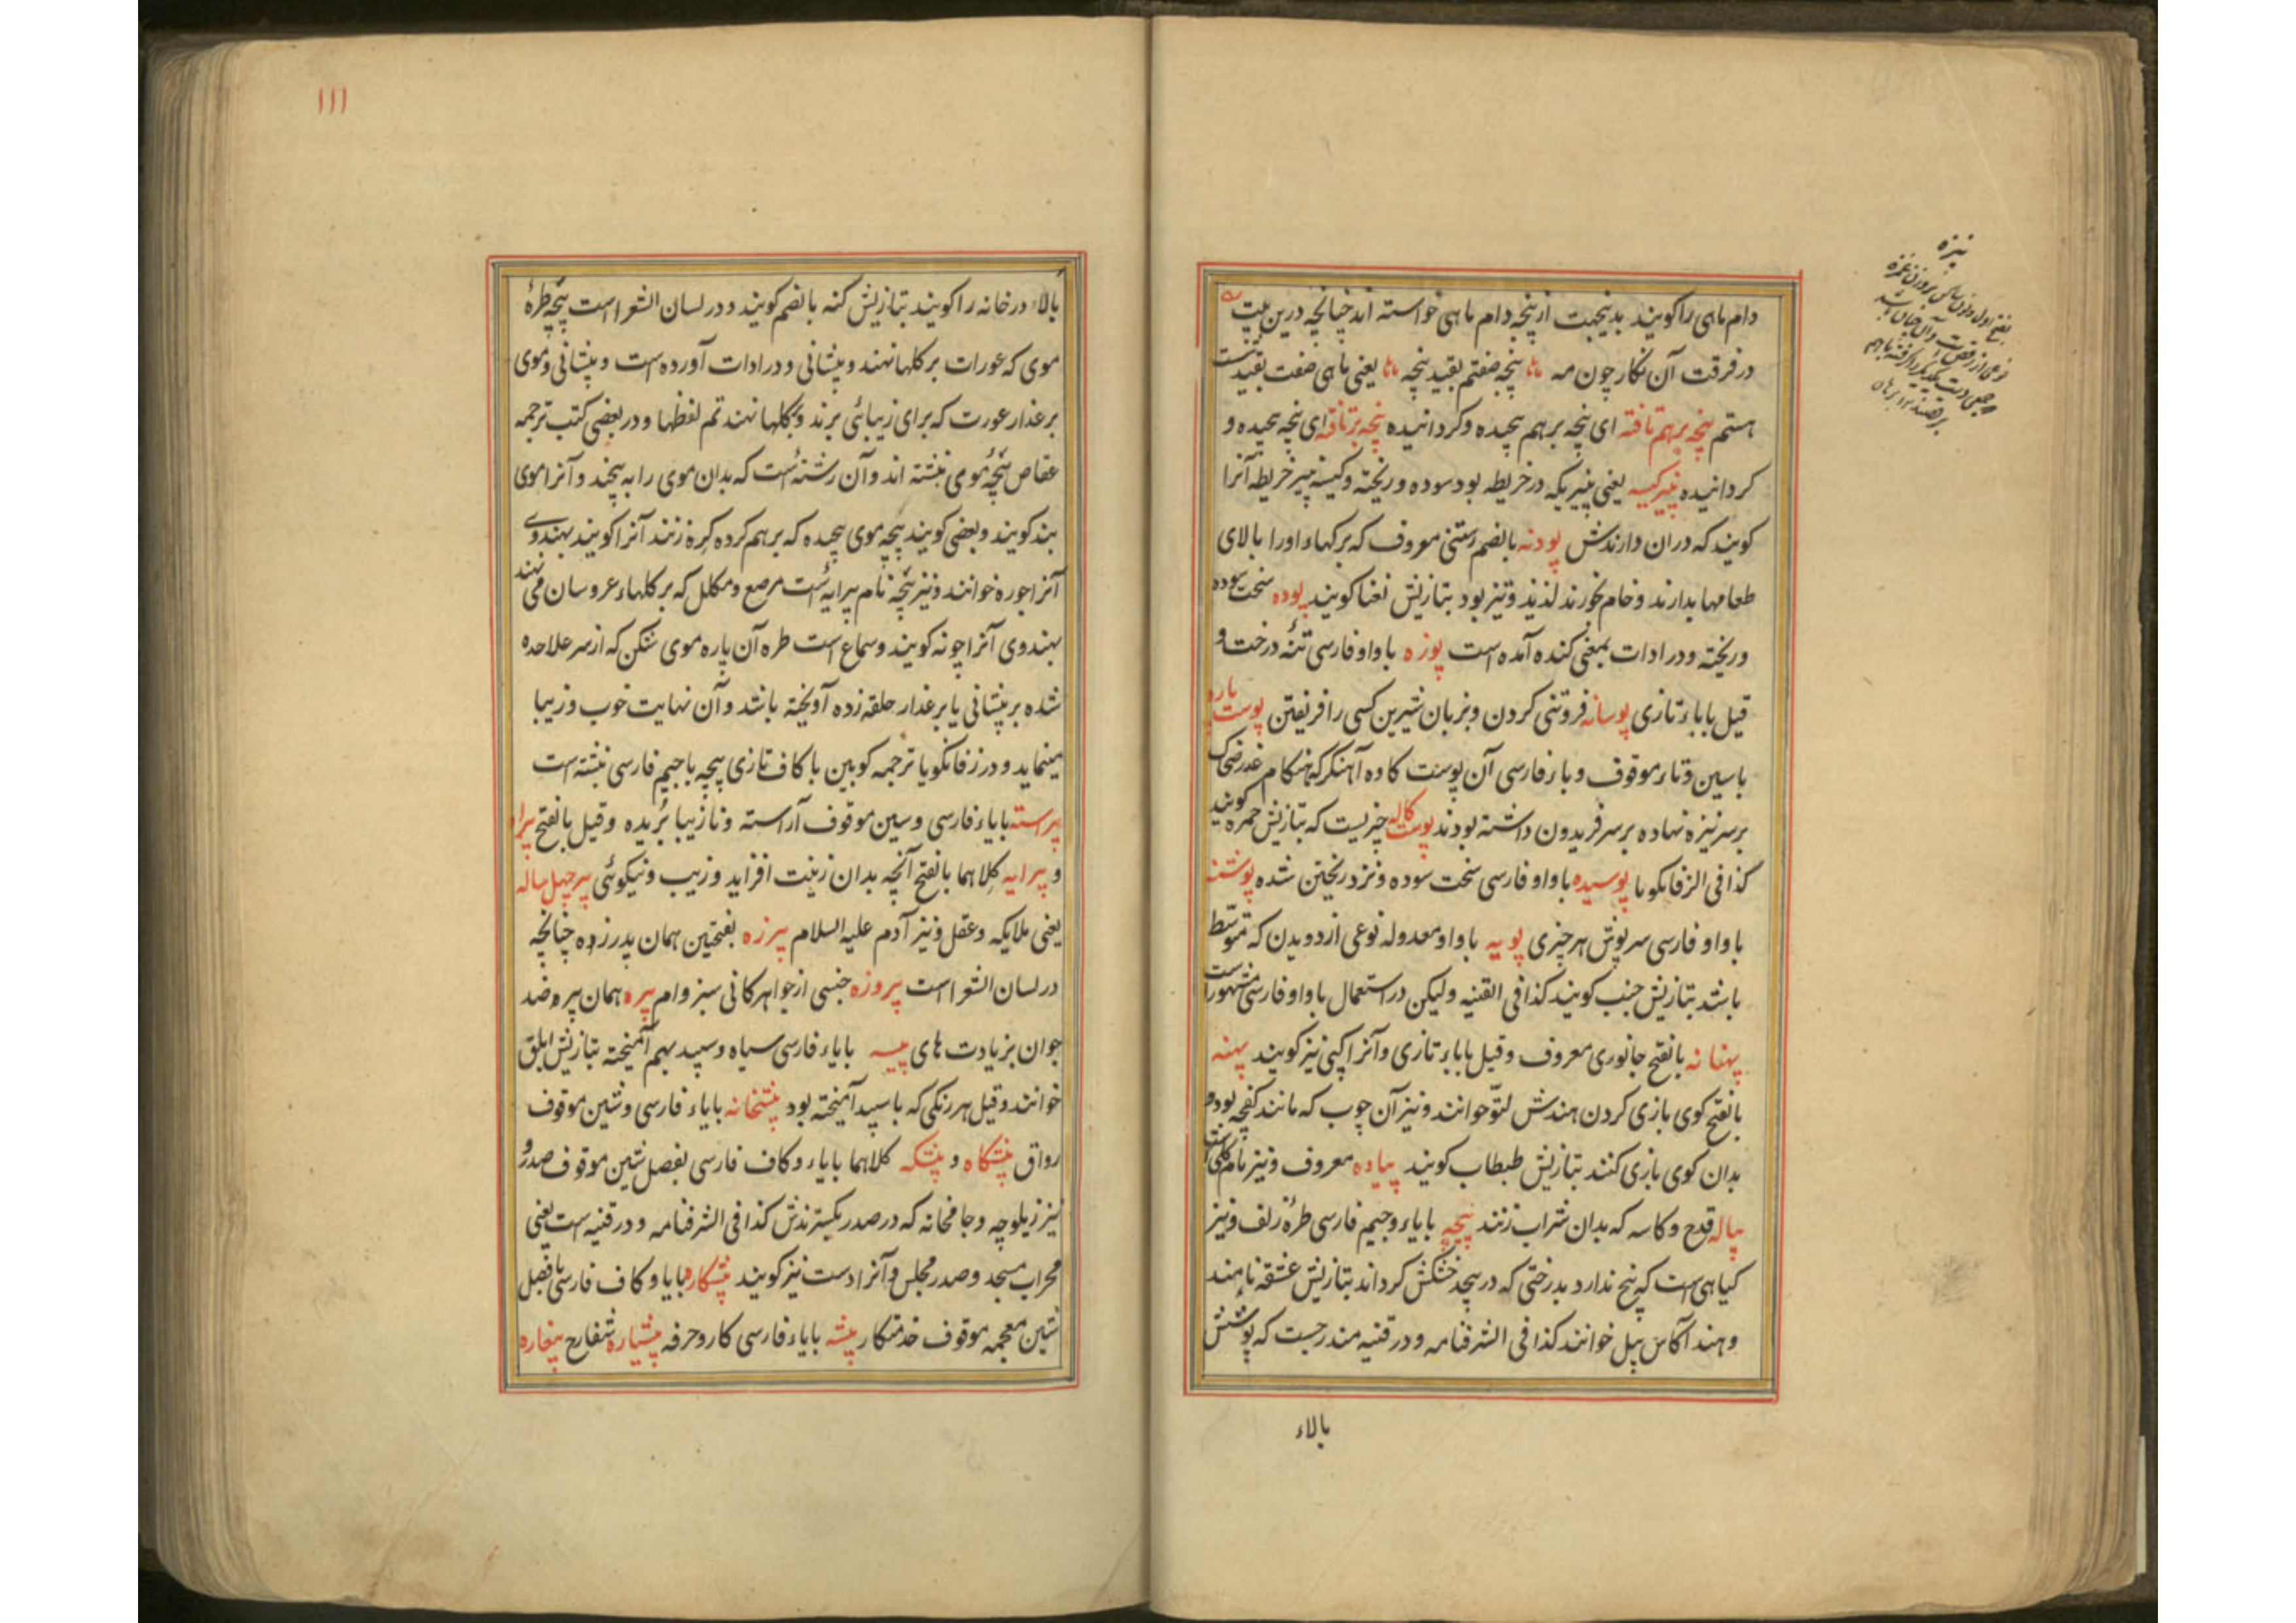 دام ماهی را کویند بدینجهت ازپنجه دام ماهی خواسته اند چنانچه درین بیت
در فرقت آن نکار چون مه پنجه صفتم بقید پنجه یعنی ماهی صفت بقید شست
هستم پنجه برهم تافته ای پنجه برهم پیچیده و کردانیده پنجه برتافته ای پنجه پیچیده و
کردانیده پنیر کیسه یعنی پنیریکه در خریطه بود سوده و ریخته و کیسه پنیر خریطه آنرا
کویند که دران دارندش پودنه بالضم رستنی معروف که برکهاء اورا بالای
طعامها بدارند و خام بخورند لذیذ و تیز بود بتازیش نعنا کویند پوده سخت سوده
و ریخته و در ادات بمعنی کنده آمده است پوزه باواو فارسی تنهٔ درخت و
قیل باباء تازی پوسانه فروتنی کردن و بزبان شیرین کسی را فریفتن پوست پاره
باسین و تاء موقوف و باء فارسی آن پوست کاوه آهنکر که هنکام غدر ضحاک
برسر نیزه نهاده برسر فریدون داشته بودند پوست کاله چیزیست که بتازیش حمره کویند
کذا فی الزفانکویا پوسیده باواو فارسی سخت سوده و نزد ریختن شده پوشنه
باواو فارسی سرپوش هر چیزی پویه باواو معدوله نوعی از دویدن که متوسط
باشد بتازیش خبب کویند کذا فی القنیه ولیکن در استعمال باواو فارسی مشهور است
پهنانه بالفتح جانوری معروف و قیل باباء تازی و آنرا کپی نیز کویند پهنه
بالفتح کوی بازی کردن هندش لتو خوانند و نیز آن چوب که مانند کفچه بود و
بدان کوی بازی کنند بتازیش طبطاب کویند پیاده معروف و نیز نام کلی
پیاله قدح و کاسه که بدان شراب زنند پیچه بایاء و جیم فارسی طرهٔ زلف و نیز
کیاهی است که بیخ ندارد بدرختی که درپیچد خشکش کرداند بتازیش عشقه نامند
و هند آکاس بیل خوانند کذا فی الشرفنامه و در قنیه مندرجست که پوشش
بالاء
نیزه
بفتح اول و ثانی ساکن بروزن غمزه
نوعی از رقص است و آن چنان باشد
که جمعی دست یکدیکر را کرفته باهم
برقصند برهان
۱۱۱
بالاء در خانه را کویند بتازیش کنه بالضم کویند و در لسان الشعرا است پیچه طرهٔ
موی که عورات بر کلها نهند و پیشانی و در ادات آورده است و پیشانی و موی
بر عذار عورت که برای زیبائی برند و بکلها نهند تم لفظها و در بعضی کتب ترجمه
عقاص پیچهٔ موی نبشته اند و آن رشتهٔ است که بدان موی را به پیچند و آنرا موی
بند کویند و بعضی کویند پیچه موی پیچیده که برهم کرده کره زنند آنرا کویند بهندوی
آنرا جوره خوانند و نیز پیچه نام پیرایهٔ است مرصع و مکلل که بر کلهاء عروسان می نهند
بهندوی آنرا چونه کویند و سماع است طره آن پاره موی شکن که از سر علاحده
شده بر پیشانی یا بر عذار حلقه زده آویخته باشد و آن نهایت خوب و زیبا
مینماید و در زفانکویا ترجمه کوبین باکاف تازی پیچه باجیم فارسی نبشته است
پیراسته بایاء فارسی و سین موقوف آراسته و نازیبا بریده و قیل بالفتح پیراه
و پیرایه کلاهما بالفتح آنچه بدان زینت افزاید و زیب و نیکوئی پیر چهل ساله
یعنی ملایکه و عقل و نیز آدم علیه السلام پیرزه بفتحتین همان پدرزده چنانچه
در لسان الشعرا است پیروزه جنسی از جواهر کانی سبز وام پیره همان پیر ضد
جوان بزیادت های پیسه بایاء فارسی سیاه و سپید بهم آمیخته بتازیش ابلق
خوانند و قیل هر رنکی که باسپید آمیخته بود پیشخانه بایاء فارسی و شین موقوف
رواق پیشکاه و پیشکه کلاهما بایاء و کاف فارسی بفصل شین موقوف صدر و
نیز زیلوچه و جامخانه که در صدر بکسترندش کذا فی الشرفنامه و در قنیه است یعنی
محراب مسجد و صدر مجلس و آنرا دست نیز کویند پیشکاره بایا و کاف فارسی بافصل
شین معجمه موقوف خدمتکار پیشه بایاء فارسی کار و حرفه پیشیاره شفارج پیغاره